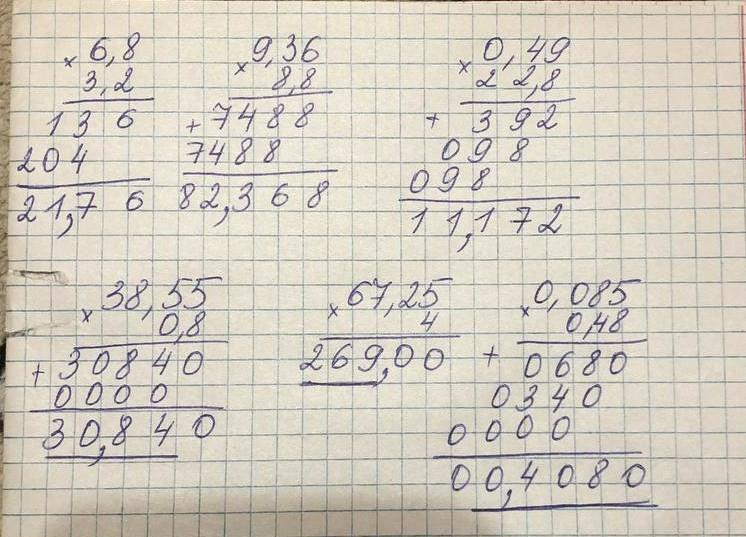 × 6,8
3,2
1 3 6
2 0 4
2 1,7 6
× 9,36
8,8
+ 7 4 8 8
7 4 8 8
8 2,3 6 8
× 0,49
2 2,8
+ 3 9 2
0 9 8
0 9 8
1 1,1 7 2
× 38,55
0,8
+ 3 0 8 4 0
0 0 0 0
3 0,8 4 0
× 67,25
4
2 6 9,0 0
× 0,085
0,48
+ 0 6 8 0
0 3 4 0
0 0 0 0
0 0,4 0 8 0